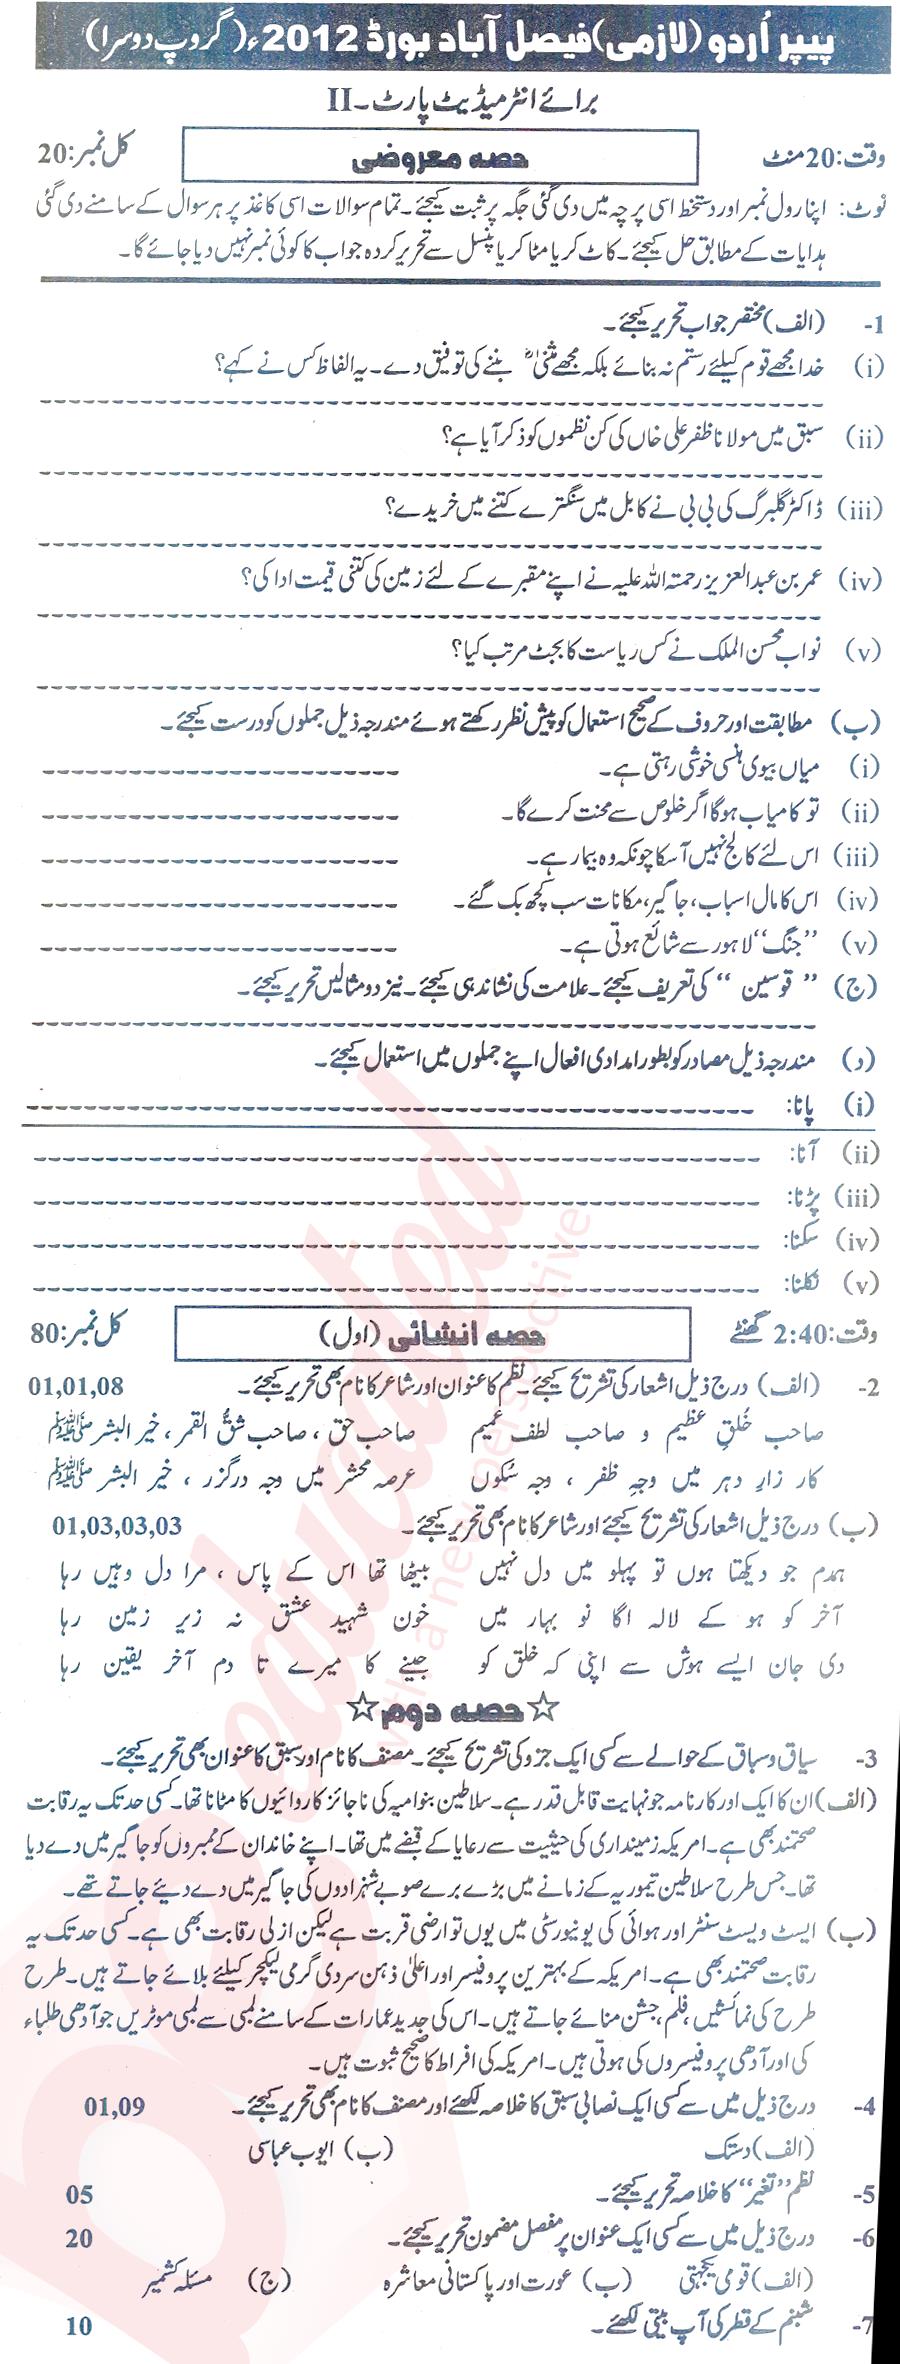 پیپر اُردو (لازمی) فیصل آباد بورڈ 2012ء (گروپ دوسرا)
برائے انٹرمیڈیٹ پارٹ۔II
وقت:20منٹ حصہ معروضی کل نمبر:20
نوٹ: اپنا رول نمبر اور دستخط اسی پرچہ میں دی گئی جگہ پر ثبت کیجئے۔ تمام سوالات اسی کاغذ پر ہر سوال کے سامنے دی گئی
ہدایات کے مطابق حل کیجئے۔ کاٹ کر یا مٹا کر یا پنسل سے تحریر کردہ جواب کا کوئی نمبر نہیں دیا جائے گا۔
1- (الف) مختصر جواب تحریر کیجئے۔
(i) خدا مجھے قوم کیلئے رستم نہ بنائے بلکہ مجھے مثنیٰؓ بننے کی توفیق دے۔ یہ الفاظ کس نے کہے؟
(ii) سبق میں مولانا ظفر علی خاں کی کن نظموں کو ذکر آیا ہے؟
(iii) ڈاکٹر گلبرگ کی بی بی نے کابل میں سنگترے کتنے میں خریدے؟
(iv) عمر بن عبدالعزیز رحمتہ اللہ علیہ نے اپنے مقبرے کے لئے زمین کی کتنی قیمت ادا کی؟
(v) نواب محسن الملک نے کس ریاست کا بجٹ مرتب کیا؟
(ب) مطابقت اور حروف کے صحیح استعمال کو پیش نظر رکھتے ہوئے مندرجہ ذیل جملوں کو درست کیجئے۔
(i) میاں بیوی ہنسی خوشی رہتی ہے۔
(ii) تو کامیاب ہوگا اگر خلوص سے محنت کرے گا۔
(iii) اس لئے کالج نہیں آ سکا چونکہ وہ بیمار ہے۔
(iv) اس کا مال اسباب، جاگیر، مکانات سب کچھ بک گئے۔
(v) "جنگ" لاہور سے شائع ہوتی ہے۔
(ج) "قوسین" کی تعریف کیجئے۔ علامت کی نشاندہی کیجئے۔ نیز دو مثالیں تحریر کیجئے۔
(د) مندرجہ ذیل مصادر کو بطور امدادی افعال اپنے جملوں میں استعمال کیجئے۔
(i) پانا:
(ii) آنا:
(iii) پڑنا:
(iv) سکنا:
(v) نکلنا:
وقت:2:40 گھنٹے حصہ انشائی (اول) کل نمبر:80
2- (الف) درج ذیل اشعار کی تشریح کیجئے۔ نظم کا عنوان اور شاعر کا نام بھی تحریر کیجئے۔ 01,01,08
صاحب خُلقِ عظیم و صاحب لطف عمیم صاحب حق، صاحب شقُّ القمر، خیر البشر ﷺ
کار زارِ دہر میں وجہِ ظفر، وجہِ سکوں عرصہ محشر میں وجہ درگزر، خیر البشر ﷺ
(ب) درج ذیل اشعار کی تشریح کیجئے اور شاعر کا نام بھی تحریر کیجئے۔ 01,03,03,03
ہمدم جو دیکھتا ہوں تو پہلو میں دل نہیں بیٹھا تھا اس کے پاس، مرا دل وہیں رہا
آخر کو ہو کے لالہ اگا نو بہار میں خون شہید عشق نہ زیر زمین رہا
دی جان ایسے ہوش سے اپنی کہ خلق کو جینے کا میرے تا دم آخر یقین رہا
☆حصہ دوم☆
3- سیاق و سباق کے حوالے سے کسی ایک جزو کی تشریح کیجئے۔ مصنف کا نام اور سبق کا عنوان بھی تحریر کیجئے۔
(الف) ان کا ایک اور کارنامہ جو نہایت قابل قدر ہے۔ سلاطین بنوامیہ کی ناجائز کاروائیوں کا مٹانا تھا۔ کسی حد تک یہ رقابت
صحتمند بھی ہے۔ امریکہ زمینداری کی حیثیت سے رعایا کے قبضے میں تھا۔ اپنے خاندان کے ممبروں کو جاگیر میں دے دیا
تھا۔ جس طرح سلاطین تیموریہ کے زمانے میں بڑے بڑے صوبے شہزادوں کی جاگیر میں دے دیئے جاتے تھے۔
(ب) ایسٹ ویسٹ سنٹر اور ہوائی کی یونیورسٹی میں یوں تو ارضی قربت ہے لیکن ازلی رقابت بھی ہے۔ کسی حد تک یہ
رقابت صحتمند بھی ہے۔ امریکہ کے بہترین پروفیسر اور اعلیٰ ذہن سردی گرمی لیکچر کیلئے بلائے جاتے ہیں۔ طرح
طرح کی نمائشیں، فلم، جشن منائے جاتے ہیں۔ اس کی جدید عمارات کے سامنے لمبی سے لمبی موٹریں جو آدھی طلباء
کی اور آدھی پروفیسروں کی ہوتی ہیں۔ امریکہ کی افراط کا صحیح ثبوت ہیں۔
4- درج ذیل میں سے کسی ایک نصابی سبق کا خلاصہ لکھئے اور مصنف کا نام بھی تحریر کیجئے۔ 01,09
(الف) دستک (ب) ایوب عباسی
5- نظم "تغیر" کا خلاصہ تحریر کیجئے۔ 05
6- درج ذیل میں سے کسی ایک عنوان پر مفصل مضمون تحریر کیجئے۔ 20
(الف) قومی یکجہتی (ب) عورت اور پاکستانی معاشرہ (ج) مسئلہ کشمیر
7- شبنم کے قطر کی آپ بیتی لکھئے۔ 10
beeducated
with a new perspective